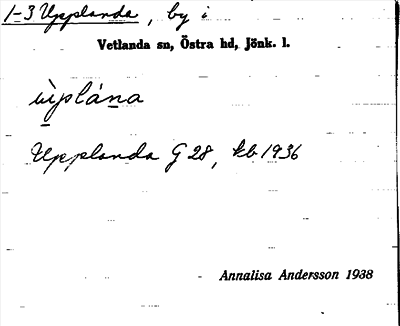 1-3 Upplanda, by i
Vetlanda sn, Östra hd, Jönk. l.
ùplána
Upplanda G 28, kb 1936
Annalisa Andersson 1938